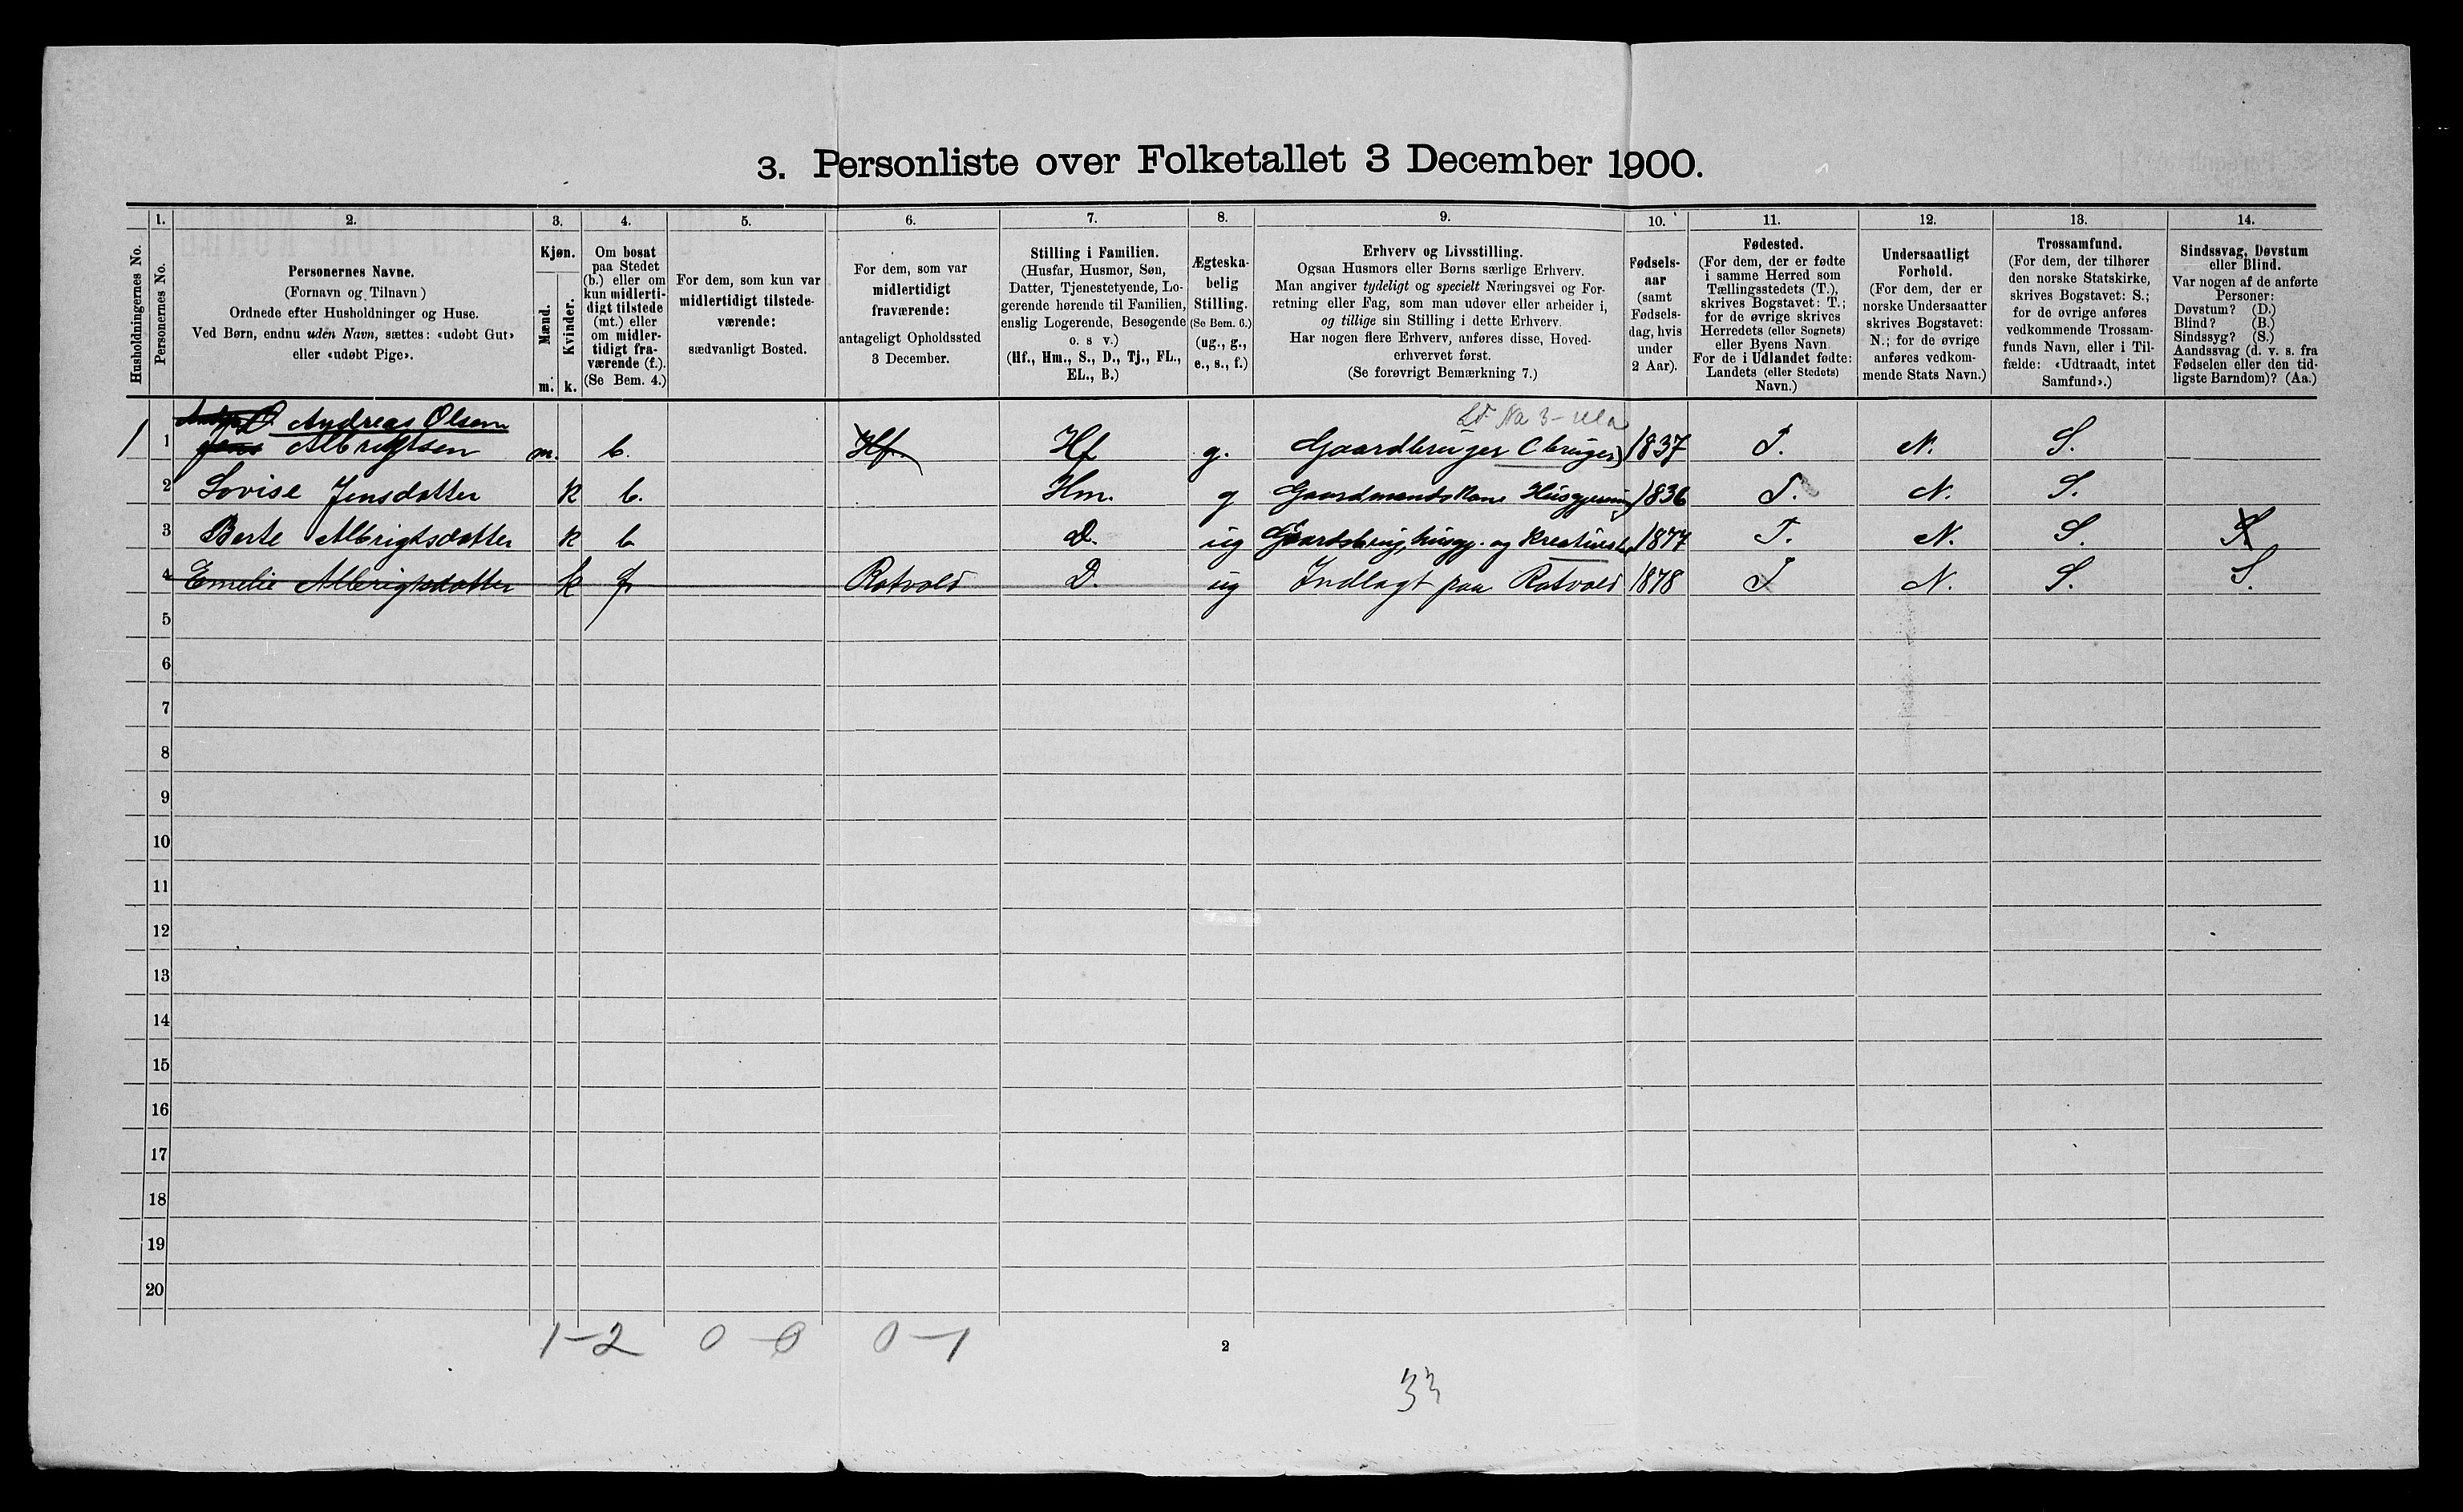 3. Personliste over Folketallet 3 December 1900.
Husholdningernes No.
1.
Personernes No.
2.
Personernes Navne.
(Fornavn og Tilnavn)
Ordnede efter Husholdninger og Huse.
Ved Børn, endnu uden Navn, sættes: «udøbt Gut»
eller «udøbt Pige».
3.
Kjøn.
Mænd.
m.
Kvinder.
k.
4.
Om bosat
paa Stedet
(b.) eller om
kun midlerti-
digt tilstede
(mt.) eller
om midler-
tidigt fra-
værende (f.).
(Se Bem. 4.)
5.
For dem, som kun var
midlertidigt tilstede-
værende:
sædvanligt Bosted.
6.
For dem, som var
midlertidigt
fraværende:
antageligt Opholdssted
3 December.
7.
Stilling i Familien.
(Husfar, Husmor, Søn,
Datter, Tjenestetyende, Lo-
gerende hørende til Familien,
enslig Logerende, Besøgende
o. s v.)
(Hf., Hm., S., D., Tj., FL.,
EL., B.)
8.
Ægteska-
belig
Stilling.
(Se Bem. 6.)
(ug., g.,
e., s., f.)
9.
Erhverv og Livsstilling.
Ogsaa Husmors eller Børns særlige Erhverv.
Man angiver tydeligt og specielt Næringsvei og For-
retning eller Fag, som man udøver eller arbeider i,
og tillige sin Stilling i dette Erhverv.
Har nogen flere Erhverv, anføres disse, Hoved-
erhvervet først.
(Se forøvrigt Bemærkning 7.)
10.
Fødsels-
aar
(samt
Fødsels-
dag, hvis
under
2 Aar).
11.
Fødested.
(For dem, der er fødte
i samme Herred som
Tællingsstedets (T.),
skrives Bogstavet: T.;
for de øvrige skrives
Herredets (eller Sognets)
eller Byens Navn.
For de i Udlandet fødte:
Landets (eller Stedets)
Navn.)
12.
Undersaatligt
Forhold.
(For dem, der er
norske Undersaatter
skrives Bogstavet:
N.; for de øvrige
anføres vedkom-
mende Stats Navn.)
13.
Trossamfund.
(For dem, der tilhører
den norske Statskirke,
skrives Bogstavet: S.;
for de øvrige anføres
vedkommende Trossam-
funds Navn, eller i Til-
fælde: «Udtraadt, intet
Samfund».)
14.
Sindssvag, Døvstum
eller Blind.
Var nogen af de anførte
Personer:
Døvstum? (D.)
Blind? (B.)
Sindssyg? (S.)
Aandssvag (d. v. s. fra
Fødselen eller den tid-
ligste Barndom)? (Aa.)
Andreas Olsen
1 1 Jens Albrigtsen m. b. Hf. Hf g. Gaardbruger (bruger) 1837 T. N. S.
2 Lovise Jensdatter k b. Hm. g Gaardmandskone Husgjerning 1836 T. N. S.
3 Berte Albrigtsdatter k b D. ug Gaardsbrug, husgj. og Kreaturstel 1877 T. N. S. S.
4 Emelie Albrigtsdatter k f Rotvold D. ug Indlagt paa Rotvold 1878 T N. S. S.
5
6
7
8
9
10
11
12
13
14
15
16
17
18
19
20
1-2 0-0 0-1
2
33